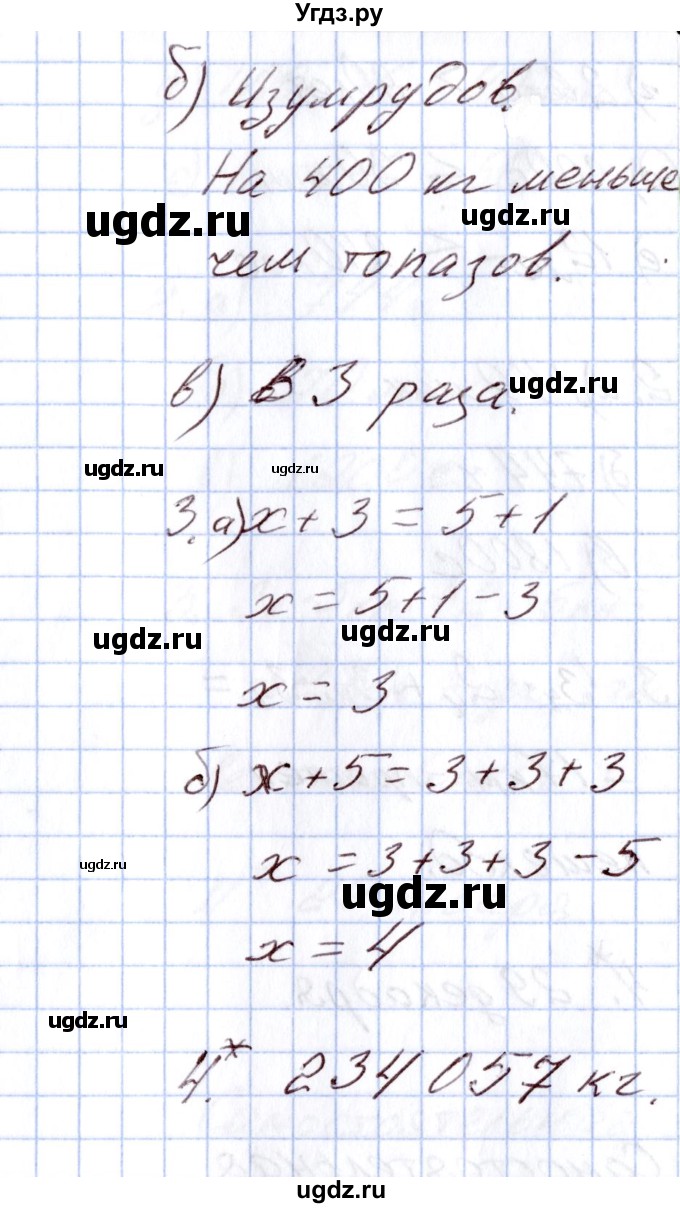 Угдз.ру
б) Изумрудов.
На 400 кг меньше
ugdz.ru ugdz.ru
чем топазов.
в) В 3 раза.
ugdz.ru
ugdz.ru ugdz.ru
3. а) x + 3 = 5 + 1
x = 5 + 1 - 3
ugdz.ru ugdz.ru
x = 3
б) x + 5 = 3 + 3 + 3
x = 3 + 3 + 3 - 5
ugdz.ru
ugdz.ru
x = 4
ugdz.ru
4.* 234 057 кг.
ugdz.ru